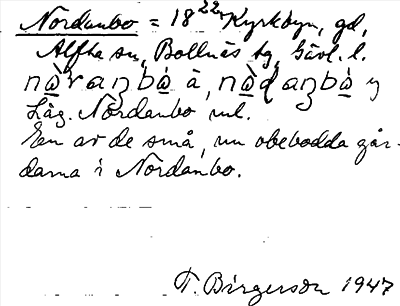 Nordanbo = 18²² Kyrkbyn, gd,
Alfta sn, Bollnäs tg, Gävl. l.
nὼraŋbὼ ä, nὼdaŋbὼ y
Låg. Nordanbo ml.
En av de små, nu obebodda går-
darna i Nordanbo.
T. Birgerson 1947